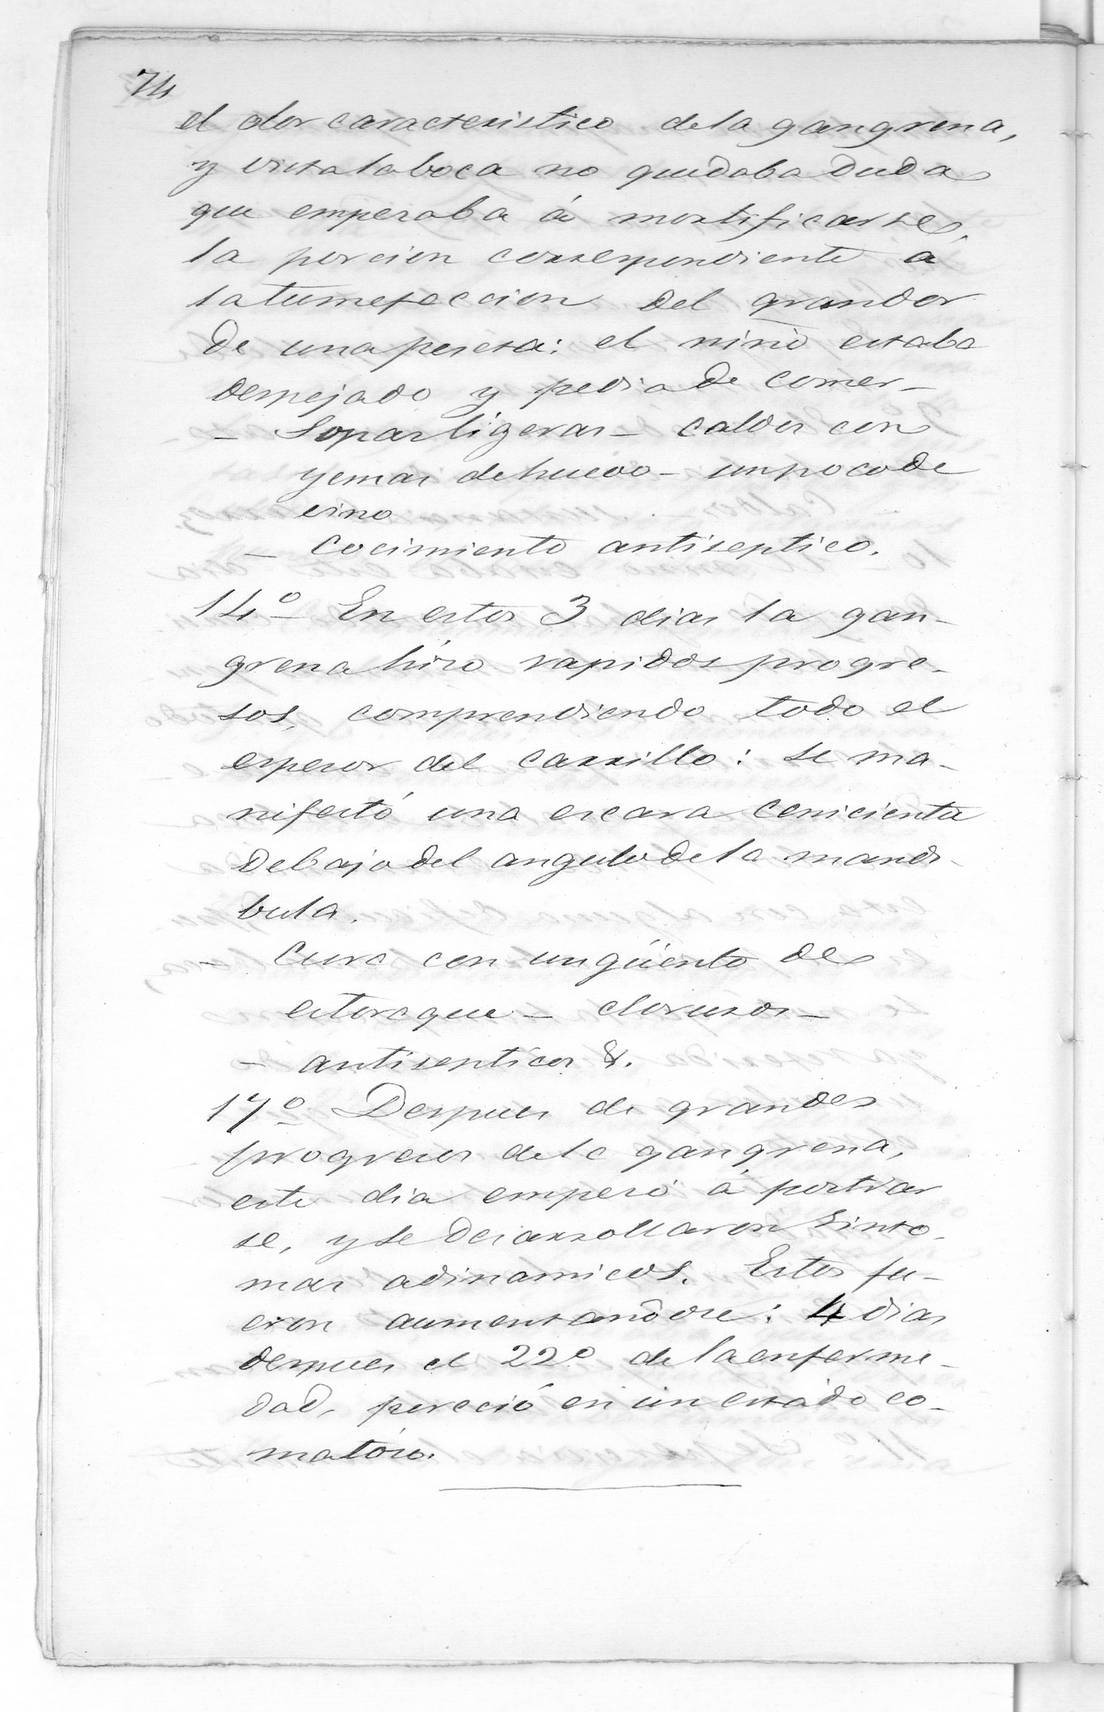 74
el olor caracteristico de la gangrena,
y vista la boca no quedaba duda
que empezaba á mortificarse,
la porcion correspondiente á
la tumefaccion del grandor
de una peseta: el niño estaba
despejado y pedia de comer –
– Sopas ligeras – caldos con
yemas de huevo – un poco de
vino
– Cocimiento antiseptico.
14º – En estos 3 dias la gan-
grena hizo rapidos progre-
sos, comprendiendo todo el
espesor del carrillo: se ma-
nifestó una escara cenicienta
debajo del angulo de la mandi-
bula.
– Cura con ungüento de
estoraque – cloruros –
– antisepticos &.
17º Despues de grandes
progresos de la gangrena,
este dia empezó á postrar
se, y se desarrollaron sinto-
mas adinamicos. Estos fu-
eron aumentandose: 4 dias
despues el 22º de la enferme-
dad, pereció en un estado co-
matoso.